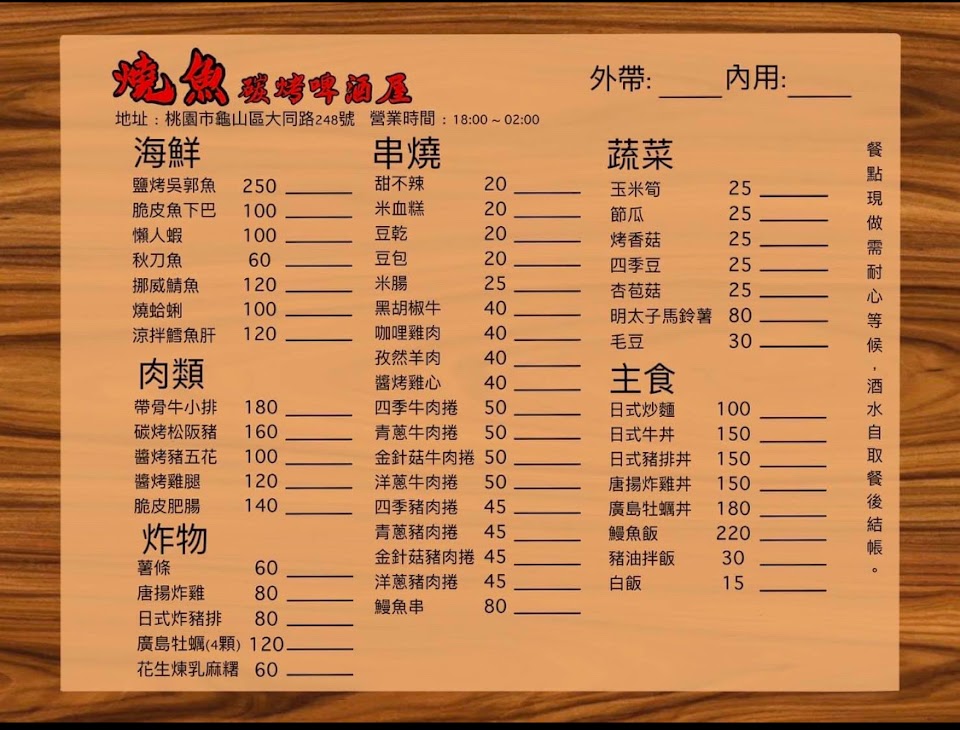 燒魚碳烤啤酒屋
外帶: _____ 內用: _____
地址：桃園市龜山區大同路248號 營業時間：18:00 ~ 02:00
海鮮
鹽烤吳郭魚 250 _____
脆皮魚下巴 100 _____
懶人蝦 100 _____
秋刀魚 60 _____
挪威鯖魚 120 _____
燒蛤蜊 100 _____
涼拌鱈魚肝 120 _____
肉類
帶骨牛小排 180 _____
碳烤松阪豬 160 _____
醬烤豬五花 100 _____
醬烤雞腿 120 _____
脆皮肥腸 140 _____
炸物
薯條 60 _____
唐揚炸雞 80 _____
日式炸豬排 80 _____
廣島牡蠣(4顆) 120 _____
花生煉乳麻糬 60 _____
串燒
甜不辣 20 _____
米血糕 20 _____
豆乾 20 _____
豆包 20 _____
米腸 25 _____
黑胡椒牛 40 _____
咖哩雞肉 40 _____
孜然羊肉 40 _____
醬烤雞心 40 _____
四季牛肉捲 50 _____
青蔥牛肉捲 50 _____
金針菇牛肉捲 50 _____
洋蔥牛肉捲 50 _____
四季豬肉捲 45 _____
青蔥豬肉捲 45 _____
金針菇豬肉捲 45 _____
洋蔥豬肉捲 45 _____
鰻魚串 80 _____
蔬菜
玉米筍 25 _____
節瓜 25 _____
烤香菇 25 _____
四季豆 25 _____
杏苞菇 25 _____
明太子馬鈴薯 80 _____
毛豆 30 _____
主食
日式炒麵 100 _____
日式牛丼 150 _____
日式豬排丼 150 _____
唐揚炸雞丼 150 _____
廣島牡蠣丼 180 _____
鰻魚飯 220 _____
豬油拌飯 30 _____
白飯 15 _____
餐點現做需耐心等候，酒水自取餐後結帳。